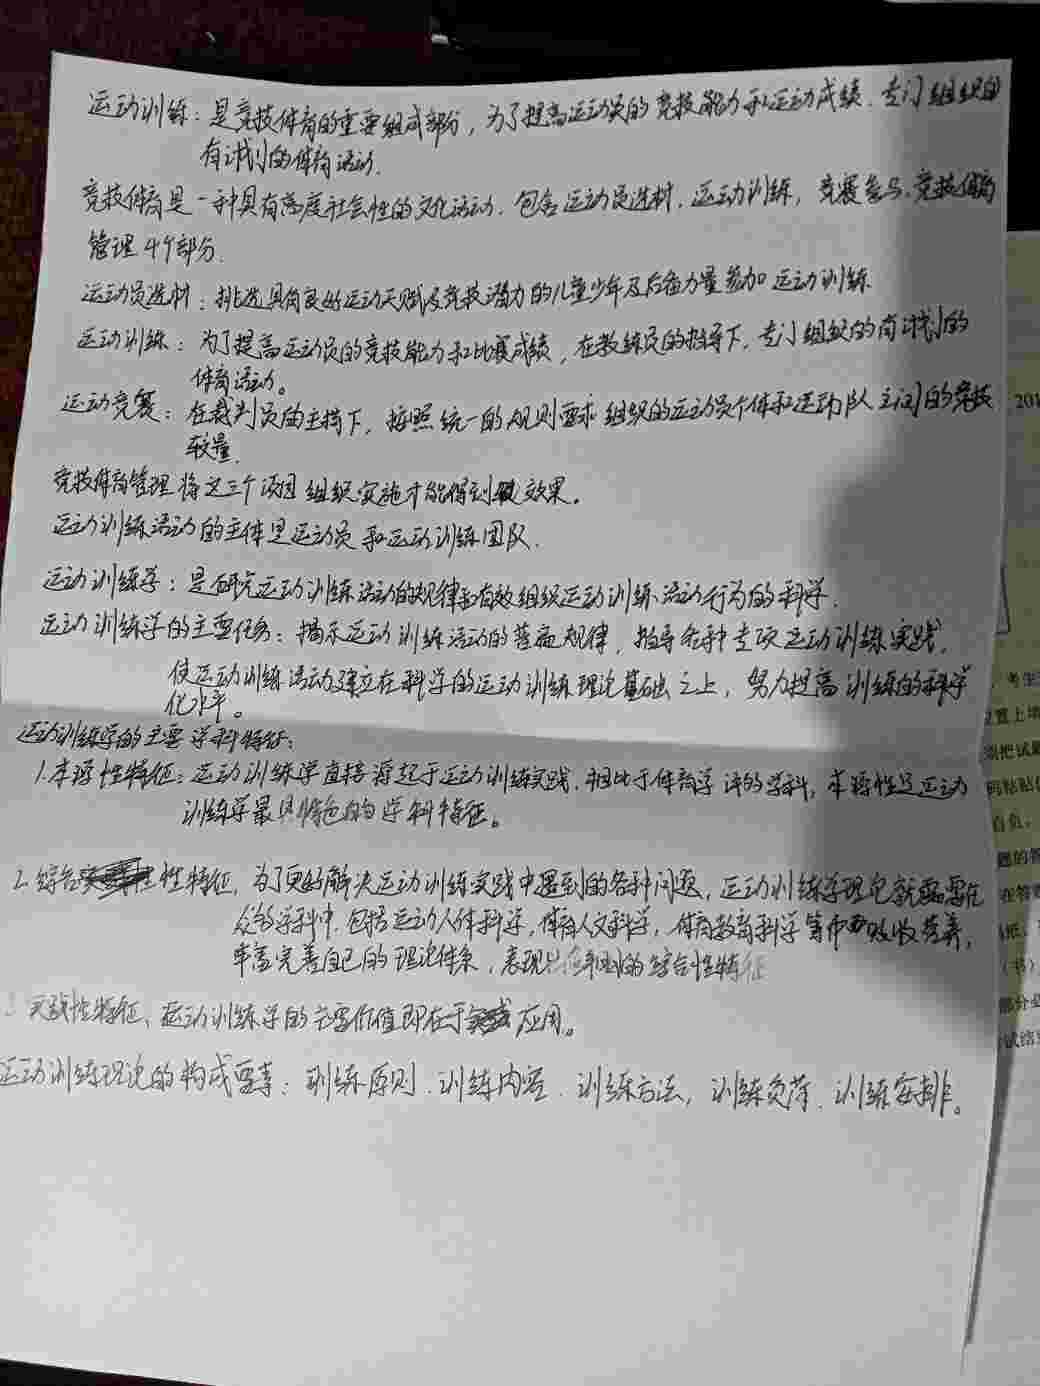 运动训练：是竞技体育的重要组成部分，为了提高运动员的竞技能力和运动成绩，专门组织的
有计划的体育活动.
竞技体育是一种具有高度社会性的文化活动.包含运动员选材.运动训练，竞赛参与.竞技体育
管理4个部分.
运动员选材：挑选具有良好运动天赋及竞技潜力的儿童少年及后备力量参加运动训练
运动训练：为了提高运动员的竞技能力和比赛成绩，在教练员的指导下，专门组织的有计划的
体育活动。
运动竞赛：在裁判员的主持下，按照统一的规则要求组织的运动员个体和运动队之间的竞技
较量.
竞技体育管理将这三个项目组织实施才能得到效果。
运动训练活动的主体是运动员和运动训练团队.
运动训练学：是研究运动训练活动的规律和有效组织运动训练活动行为的科学.
运动训练学的主要任务：揭示运动训练活动的普遍规律，指导各种专项运动训练实践，
使运动训练活动建立在科学的运动训练理论基础之上，努力提高训练的科学
化水平。
运动训练学的主要学科特征：
1.本源性特征：运动训练学直接源起于运动训练实践.相比于体育学 的学科，本源性是运动
训练学最具特色的学科特征。
2.综合性特征，为了更好解决运动训练实践中遇到的各种问题，运动训练学理论就需要在
众多学科中，包括运动人体科学，体育人文科学，体育教育科学等中吸收营养，
丰富完善自己的理论体系，表现出 的综合性特征
实践性特征、运动训练学的主要价值即在于应用。
运动训练理论的构成要素：训练原则.训练内容.训练方法，训练负荷.训练安排。
201
考生
位置上填
须把试题
码粘贴
自负。
题的答
在答题
纸、
（书）
部分必
试结